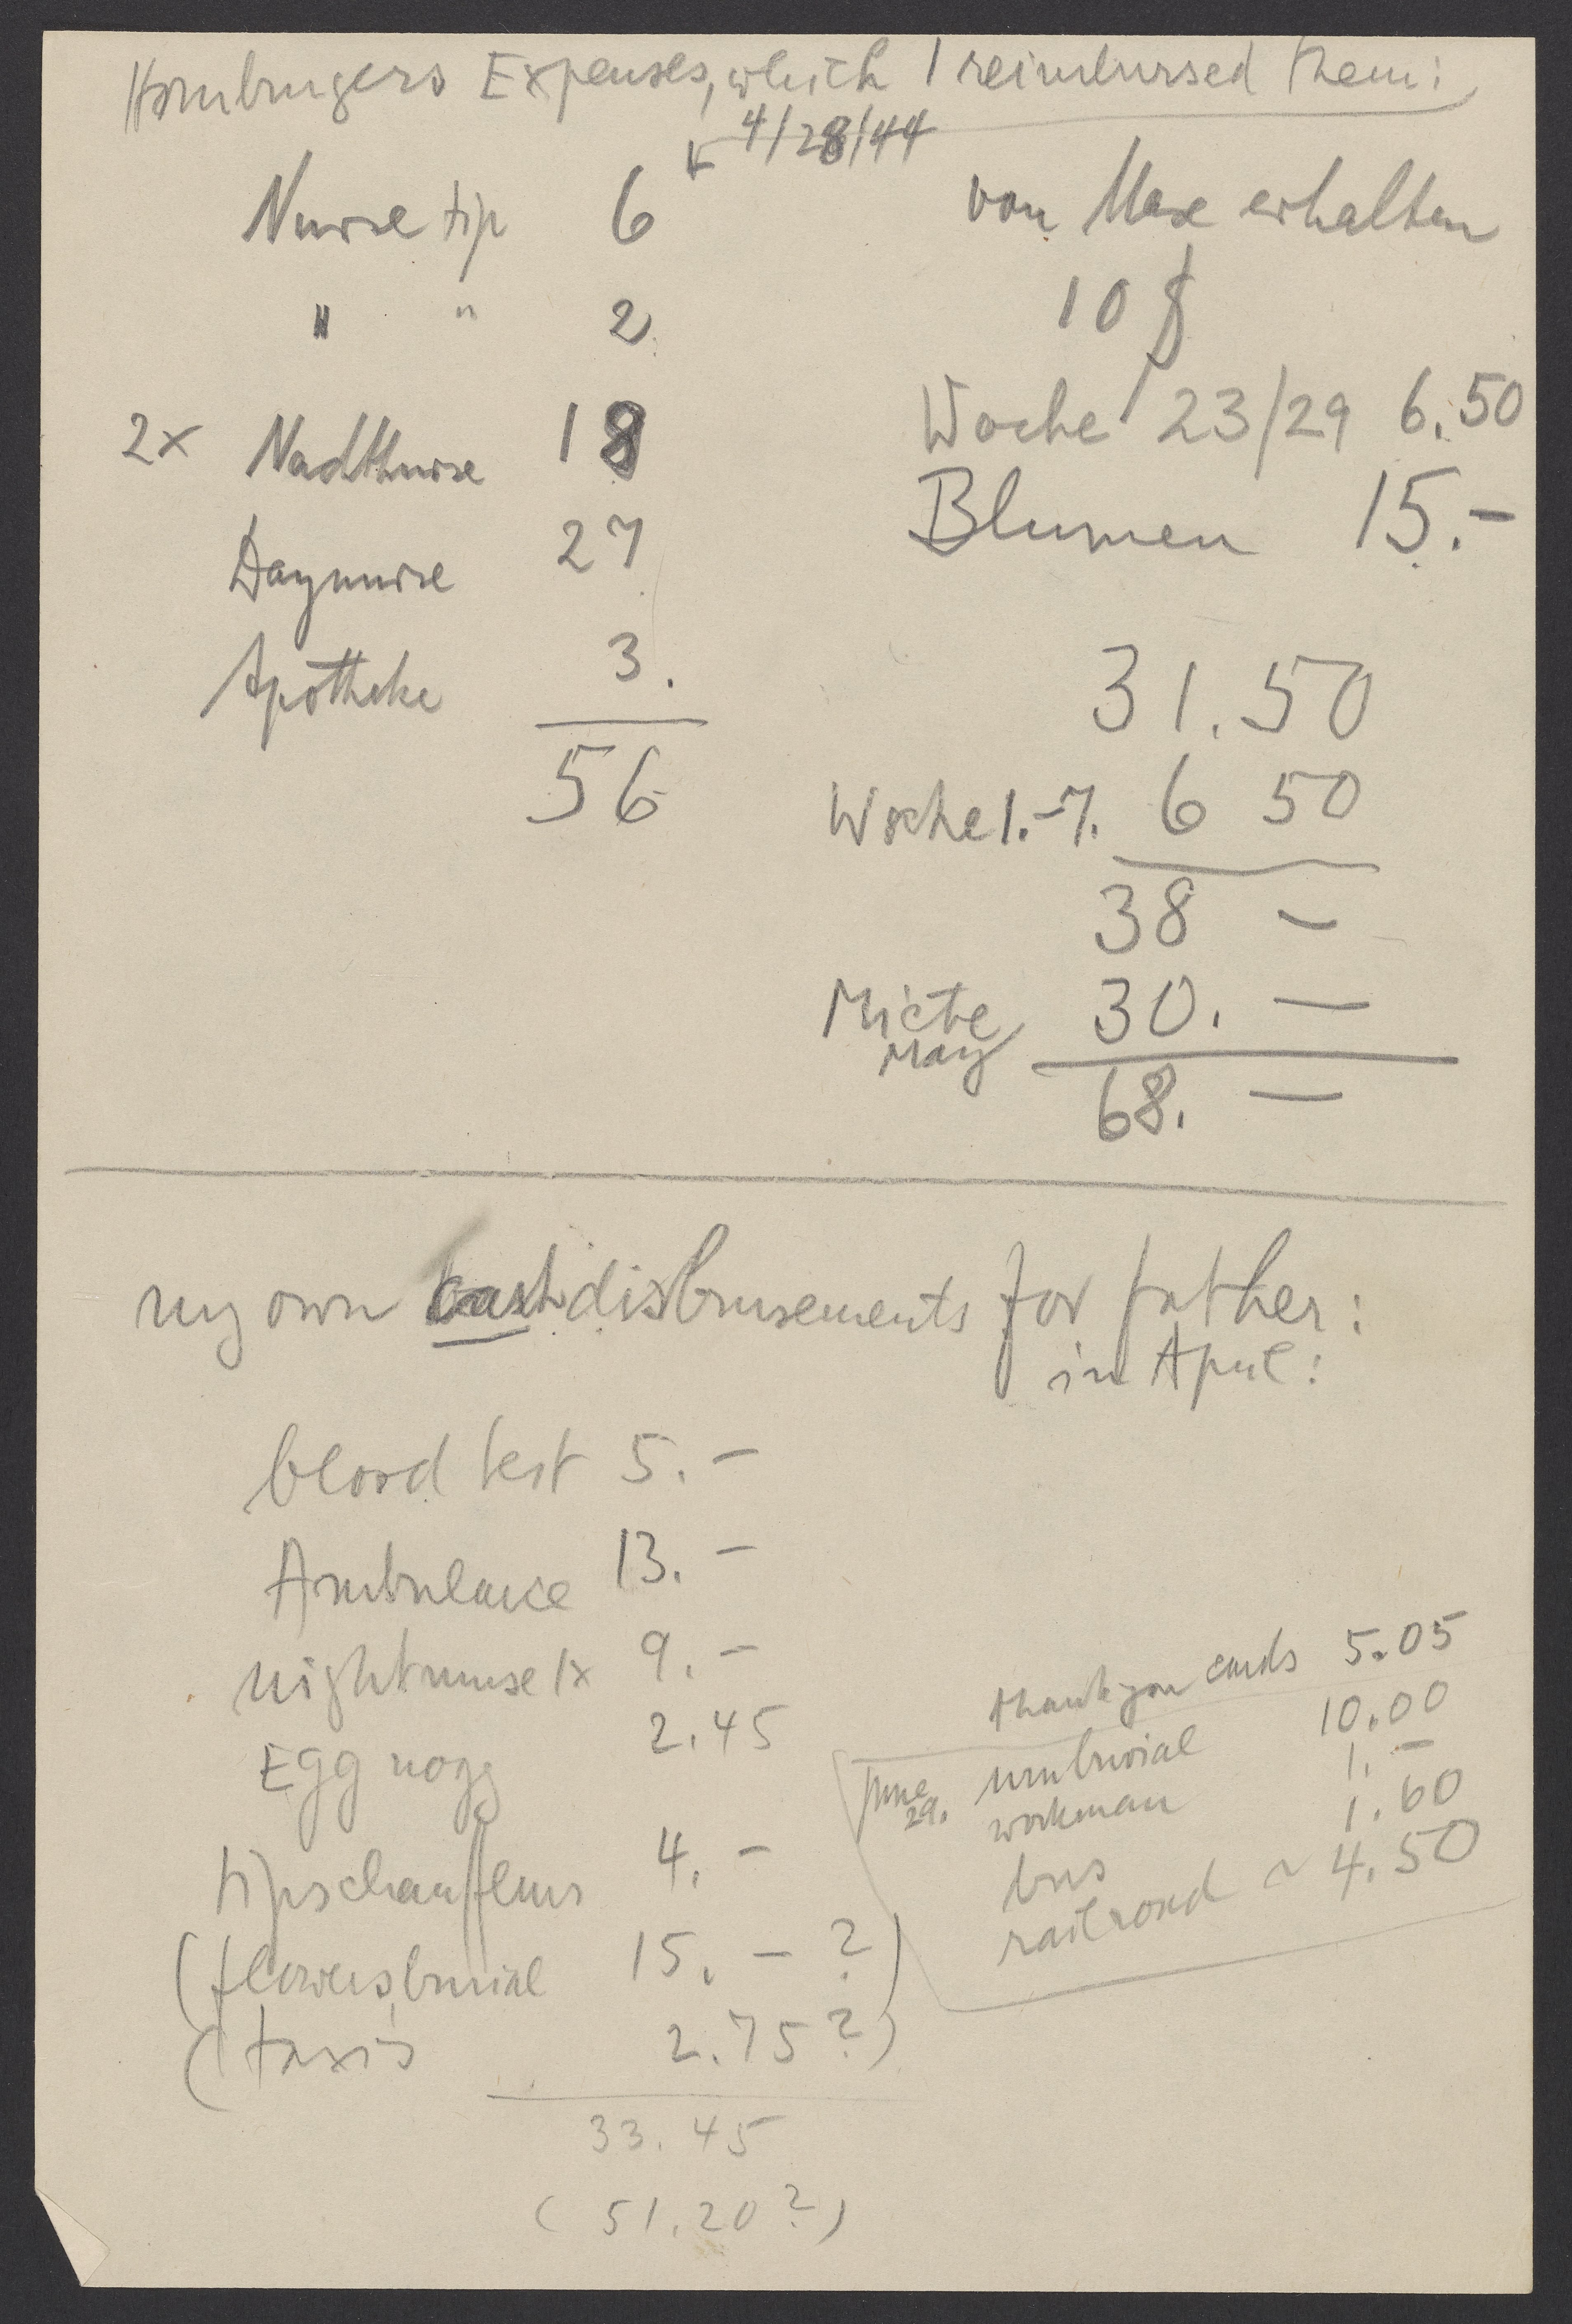 Homburgers Expenses, which I reimbursed them:
4/28/44
Nurse tip 6
" " 2
2x Nachtnurse 18
Daynurse 27
Apotheke 3.
56
von Max erhalten
10 $
Woche 23/29 6.50
Blumen 15.-
31.50
Woche 1.-7. 6 50
38 -
Miete 30. -
May
68. -
my own cash disbursements for father:
in April:
blood test 5.-
Ambulance 13.-
nightnurse 1x 9.-
Egg nogg 2.45
tips chauffeurs 4.-
(flowers burial 15.- ?)
(taxis 2.75 ?)
33.45
(51.20?)
thank you cards 5.05
June 29. urn burial 10.00
workman 1.-
bus 1.60
railroad ~ 4.50